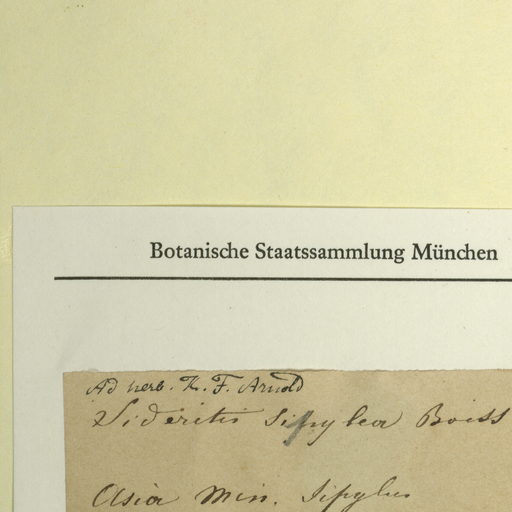 Botanische Staatssammlung München
Ad herb. F. Arnold
Sideritis sipylea Boiss
Asia Min. Sipylus